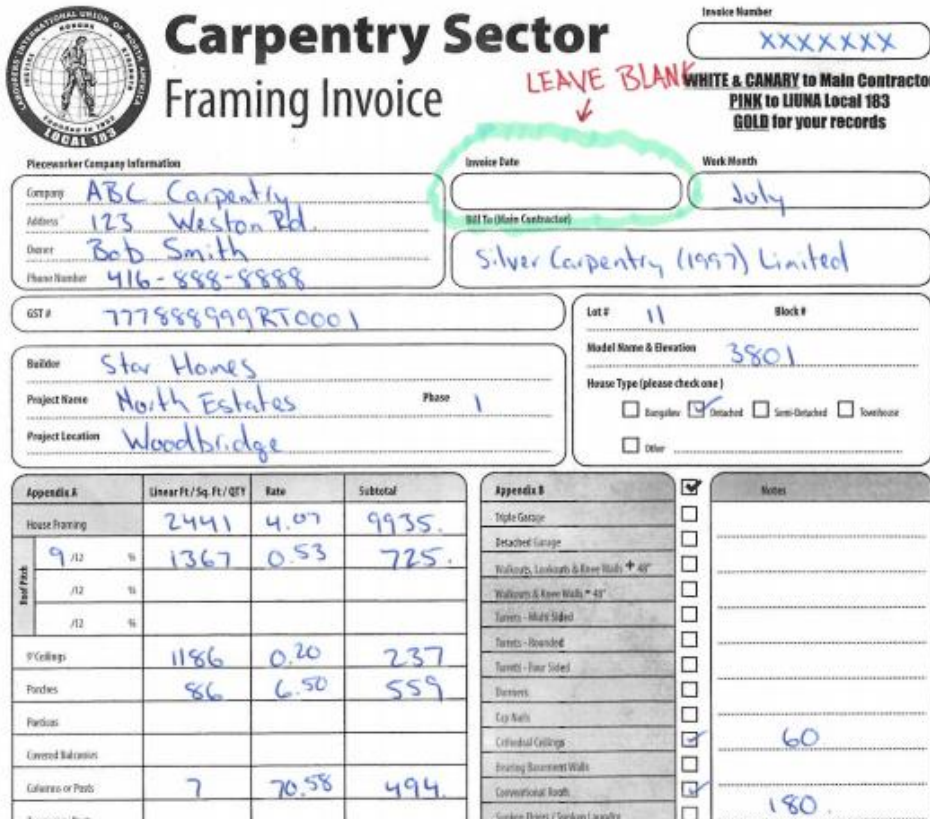 LABOURERS' INTERNATIONAL UNION OF NORTH AMERICA
LOCAL 183
Carpentry Sector
Framing Invoice
Invoice Number
XXXXXXX
LEAVE BLANK
WHITE & CANARY to Main Contractor
PINK to LIUNA Local 183
GOLD for your records
Pieceworker Company Information
Company ABC Carpentry
Address 123 Weston Rd.
Owner Bob Smith
Phone Number 416-888-8888
Invoice Date
Work Month
July
Bill To (Main Contractor)
Silver Carpentry (1997) Limited
GST # 777888999RT0001
Lot # 11 Block #
Model Name & Elevation 3801
House Type (please check one)
Bungalow Detached Semi-Detached Townhouse
Other
Builder Star Homes
Project Name North Estates Phase 1
Project Location Woodbridge
Appendix A Linear Ft / Sq. Ft / QTY Rate Subtotal
House Framing 2441 4.07 9935.
Roof Pitch
9 /12 % 1367 0.53 725.
/12 %
/12 %
9' Ceilings 1186 0.20 237
Porches 86 6.50 559
Porticos
Covered Balconies
Columns or Posts 7 70.58 494.
Appendix B Notes
Triple Garage
Detached Garage
Walkouts, Lookouts & Knee Walls + 48"
Walkouts & Knee Walls - 48"
Turrets - Multi Sided
Turrets - Rounded
Turrets - Four Sided
Dormers
Cathedral Ceilings 60
Bearing Basement Walls
Conventional Roofs 180.